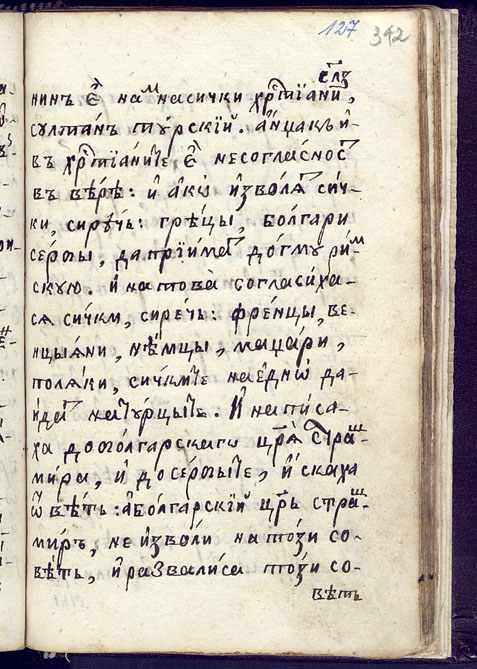 127 342
слз
нинъ е҃ на на сички хрⷭ҇тїани,
султанъ турскїй. а́нцакъ и́-
въ хрⷭ҇тїаните е҃ несогласноⷭ҇
въ вѣ́рѣ: и́ акѡ и́зволѧⷮ си́ч-
ки, сирѣ́чь: грѣ́цы, болгари
се́рбы, да прїи́маⷮ до́гму ри́ⷨ-
скую. и́ на това̀ согласи́ха-
сѧ сичкы, сирѣчь: фре́нцы, ве-
нцыѧни, нѣ́мцы, маџа́ри,
полѧ́ки, сичкыте на е́дно да-
и́даⷮ на турцыте. И́ написа́-
ха до болгарскаго црѧ̀ Страⷲ-
мира, и́ до се́рбыте, и́ скаха
ѿвѣтъ: а́ болгарскїй црь страⷲ-
миръ, не и́зволѝ на то́зи со-
вѣтъ, и́ развалиса то́зи со-
вѣтъ